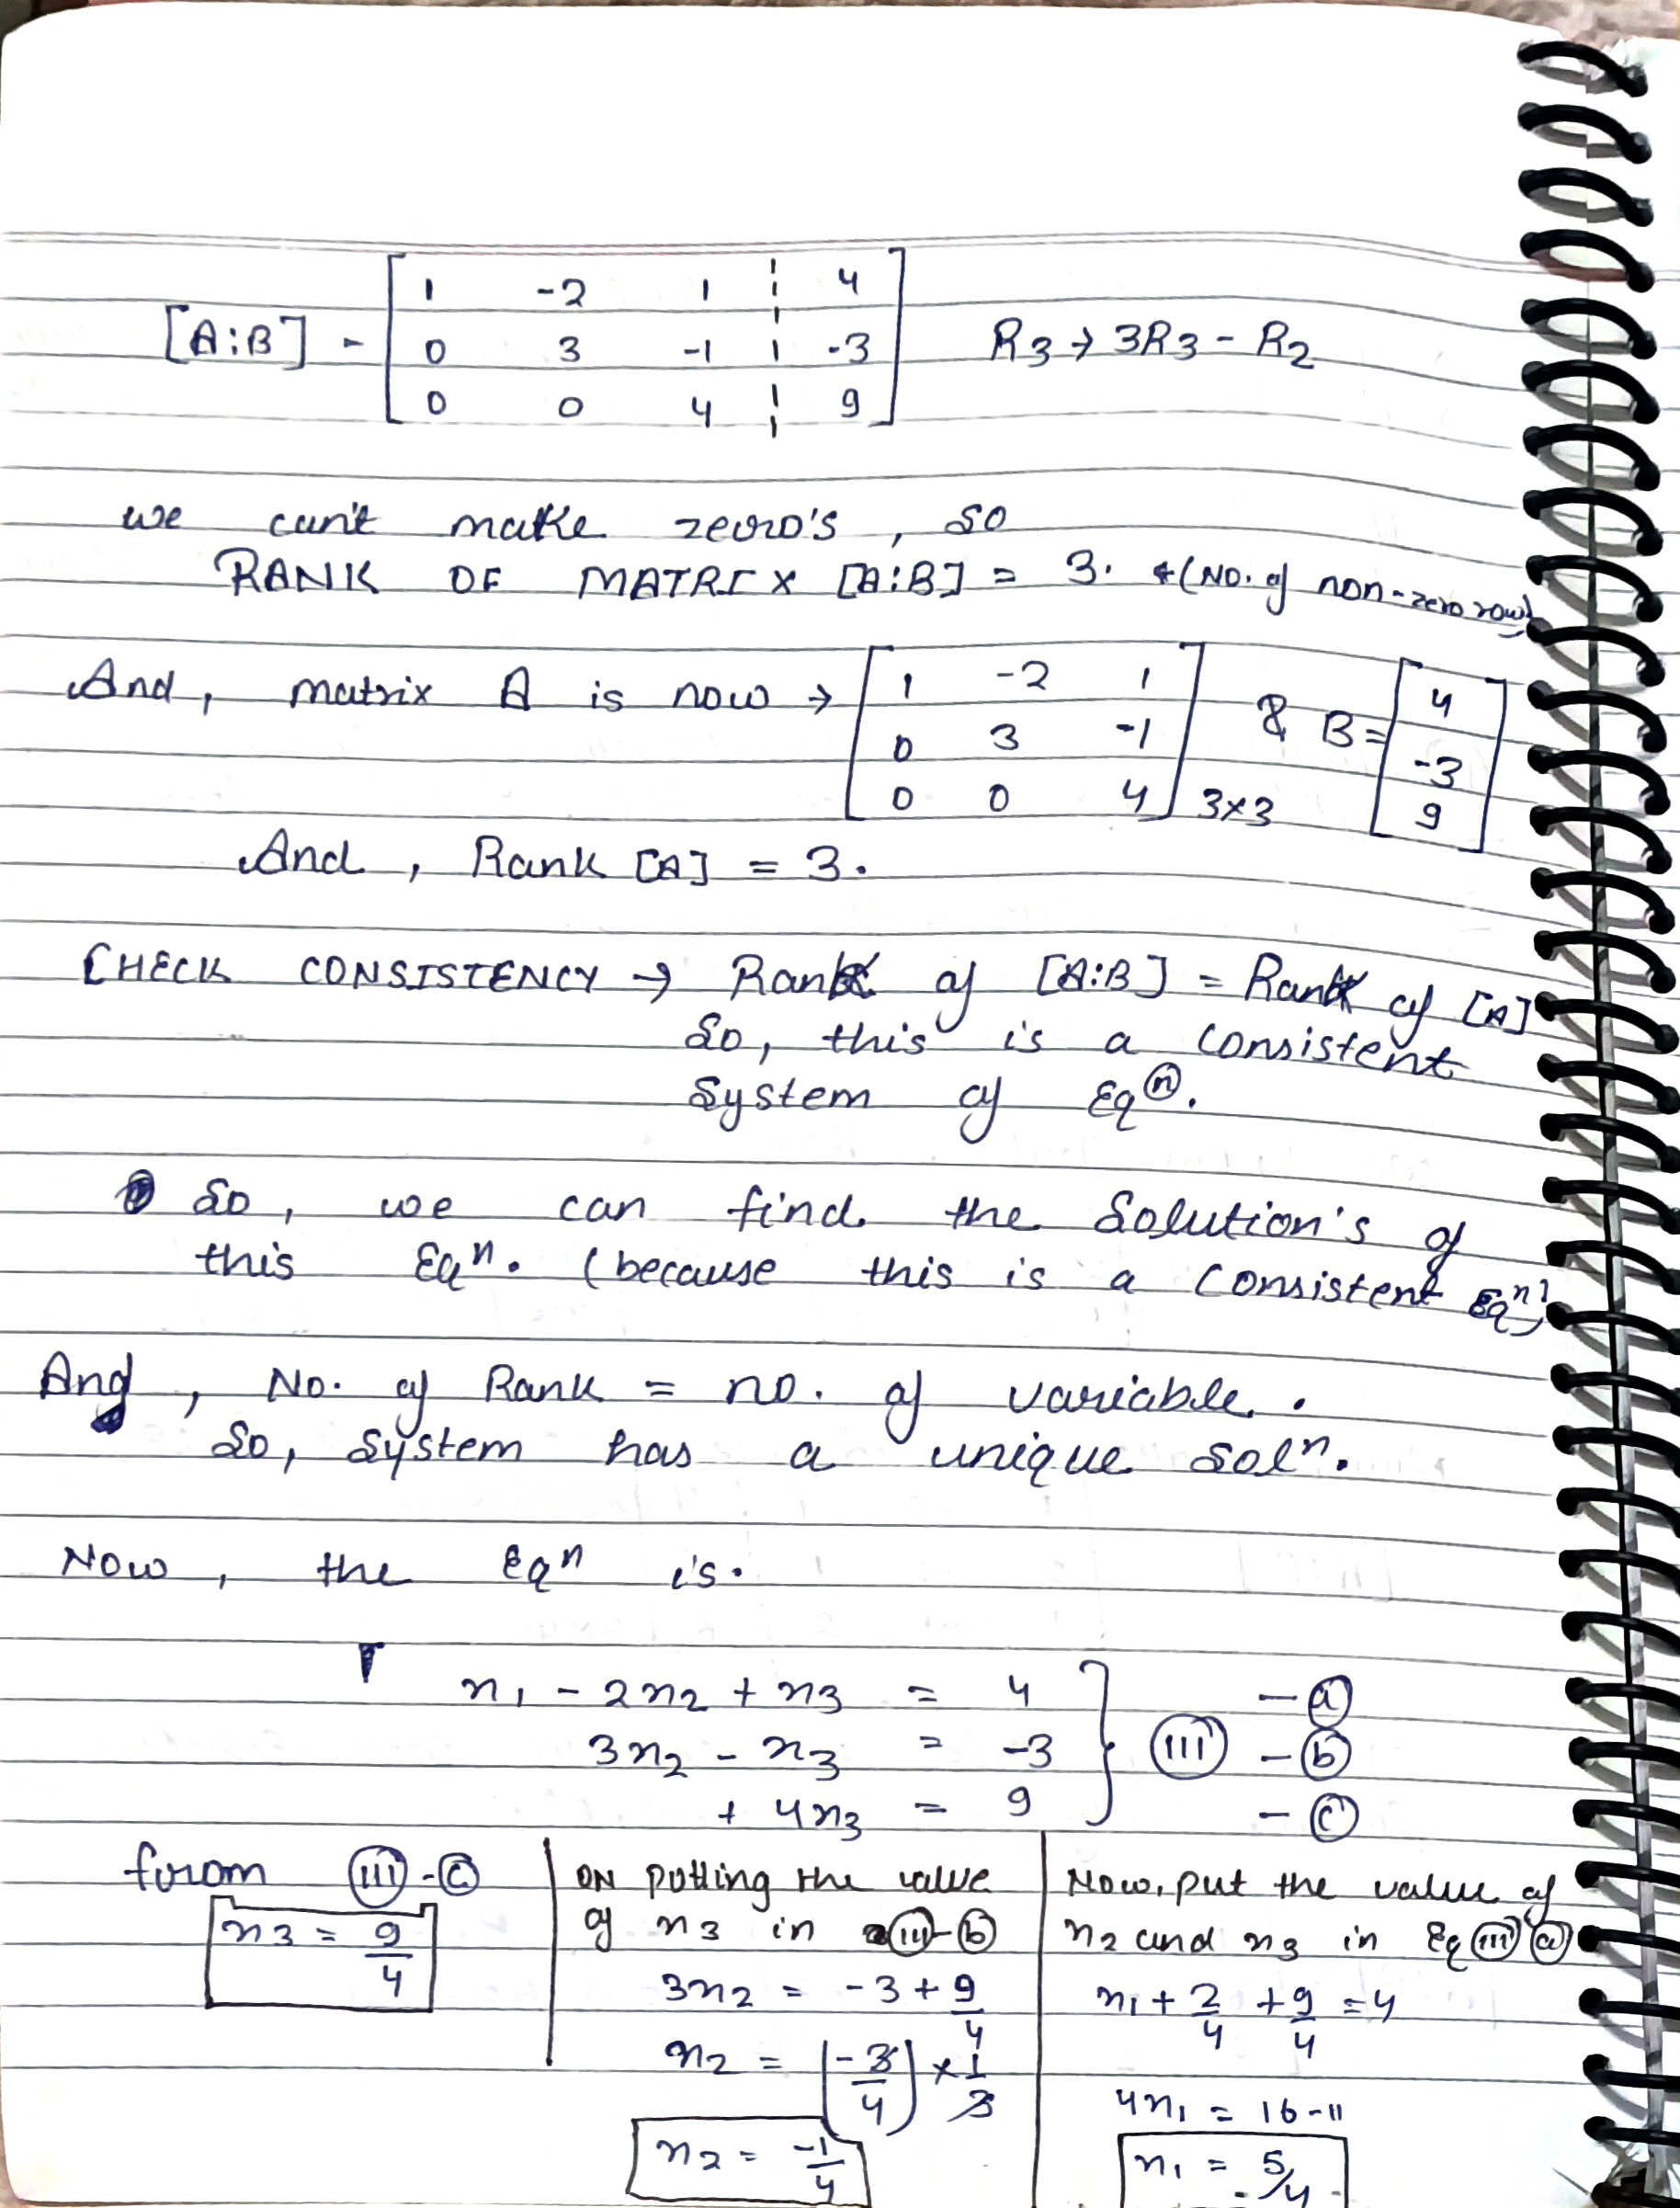 [A:B] - [ 1 -2 1 ¦ 4 ]
[ 0 3 -1 ¦ -3 ] R3 → 3R3 - R2
[ 0 0 4 ¦ 9 ]
we can't make zero's, so
RANK OF MATRIX [A:B] = 3. (No. of non-zero row)
And, matrix A is now → [ 1 -2 1 ] & B = [ 4 ]
[ 0 3 -1 ] [ -3 ]
[ 0 0 4 ] 3×3 [ 9 ]
And, Rank [A] = 3.
CHECK CONSISTENCY → Rank of [A:B] = Rank of [A]
So, this is a consistent
System of Eqⁿ.
So, we can find the Solution's of
this Eqⁿ. (because this is a consistent Eqⁿ)
And, No. of Rank = no. of variable.
So, System has a unique solⁿ.
Now, the Eqⁿ is.
n1 - 2n2 + n3 = 4 - a
3n2 - n3 = -3 } III - b
+ 4n3 = 9 - c
from III - c
n3 = 9/4
ON putting the value
of n3 in III - b
3n2 = -3 + 9/4
n2 = (-3/4) × 1/3
n2 = -1/4
Now, put the value of
n2 and n3 in Eq III a
n1 + 2/4 + 9/4 = 4
4n1 = 16 - 11
n1 = 5/4